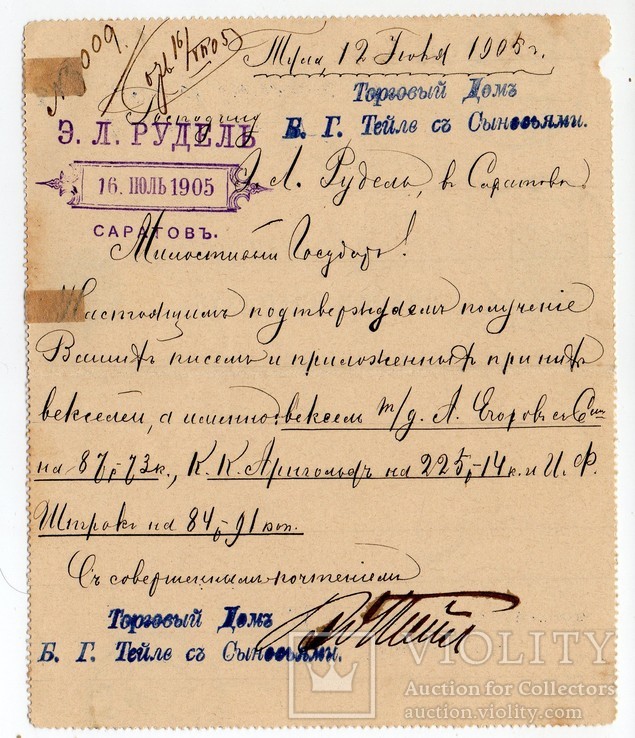 № 1009.
Тула 12 Іюля 1905 г.
Торговый Домъ
Б. Г. Тейле съ Сыновьями.
Господину
Э. Л. РУДЕЛЬ
16. ІЮЛЬ 1905
САРАТОВЪ.
Э Л. Рудель, въ Саратовѣ.
Милостивый Государь!
Настоящимъ подтверждаемъ полученіе
Вашихъ писемъ и приложенныхъ при нихъ
векселей, а именно: вексель т/д. А. Егоровъ съ С-ми
на 87р 73 к., К. К. Аригольдъ на 225р-14 к. и И. Ф.
Штрокъ на 84р 91 коп.
Съ совершеннымъ почтеніемъ
Торговый Домъ
Б. Г. Тейле съ Сыновьями.
VIOLITY
Auction for Collectors
auction.violity.com